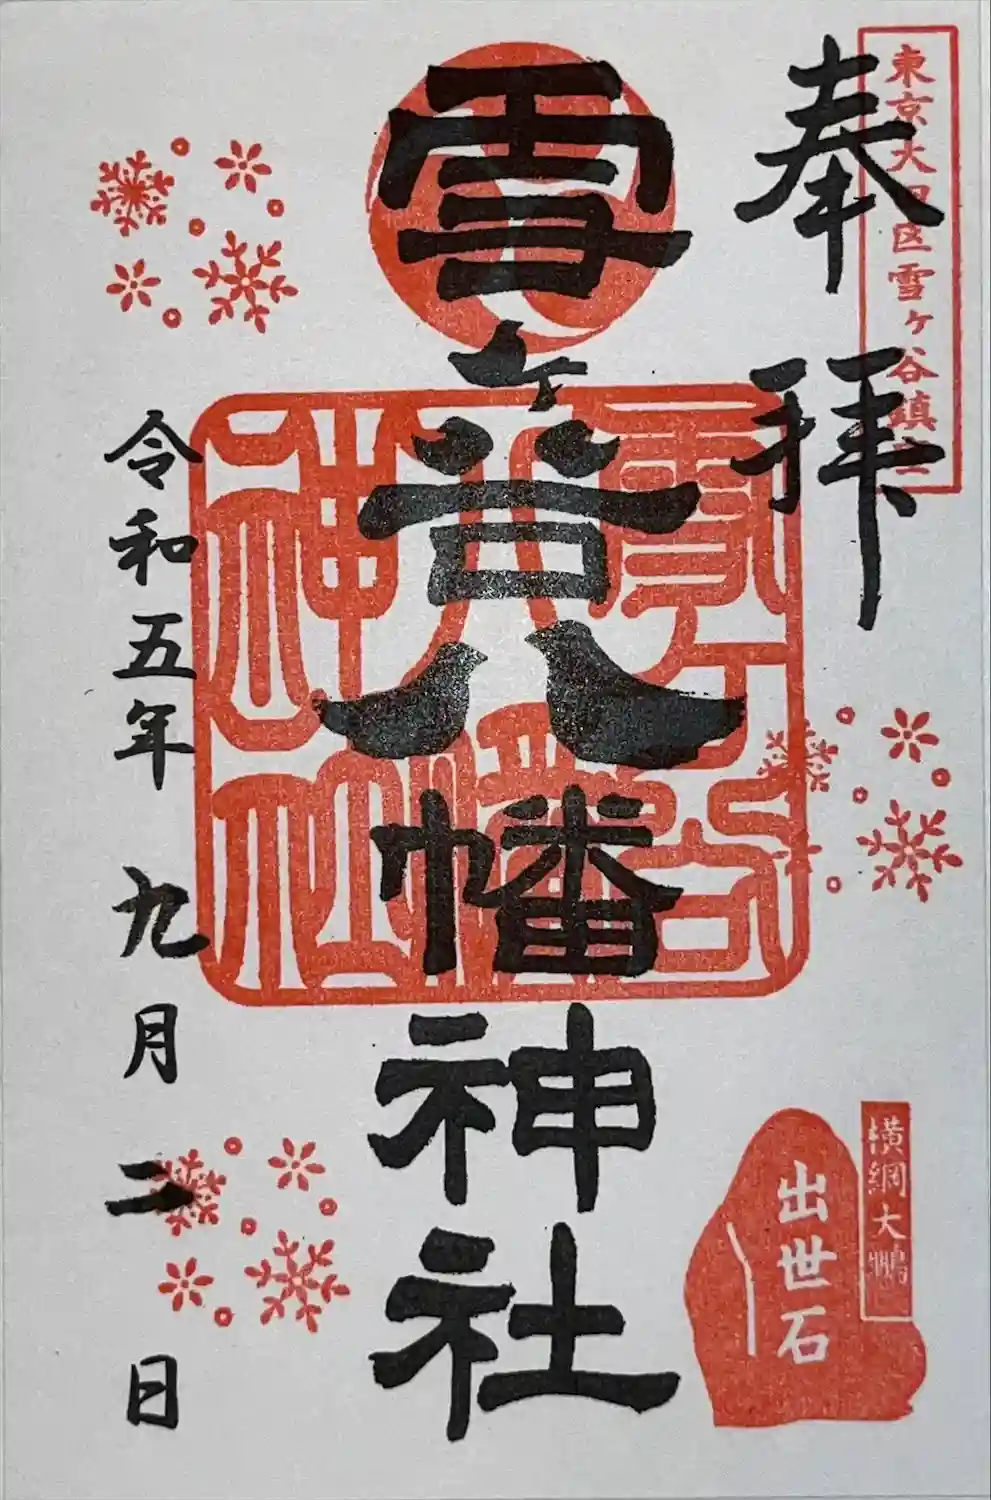 東京大田区雪ヶ谷鎮守
奉拝
雪ヶ谷八幡神社
雪ヶ谷
八幡
神社
横綱大鵬
出世石
令和五年九月二日